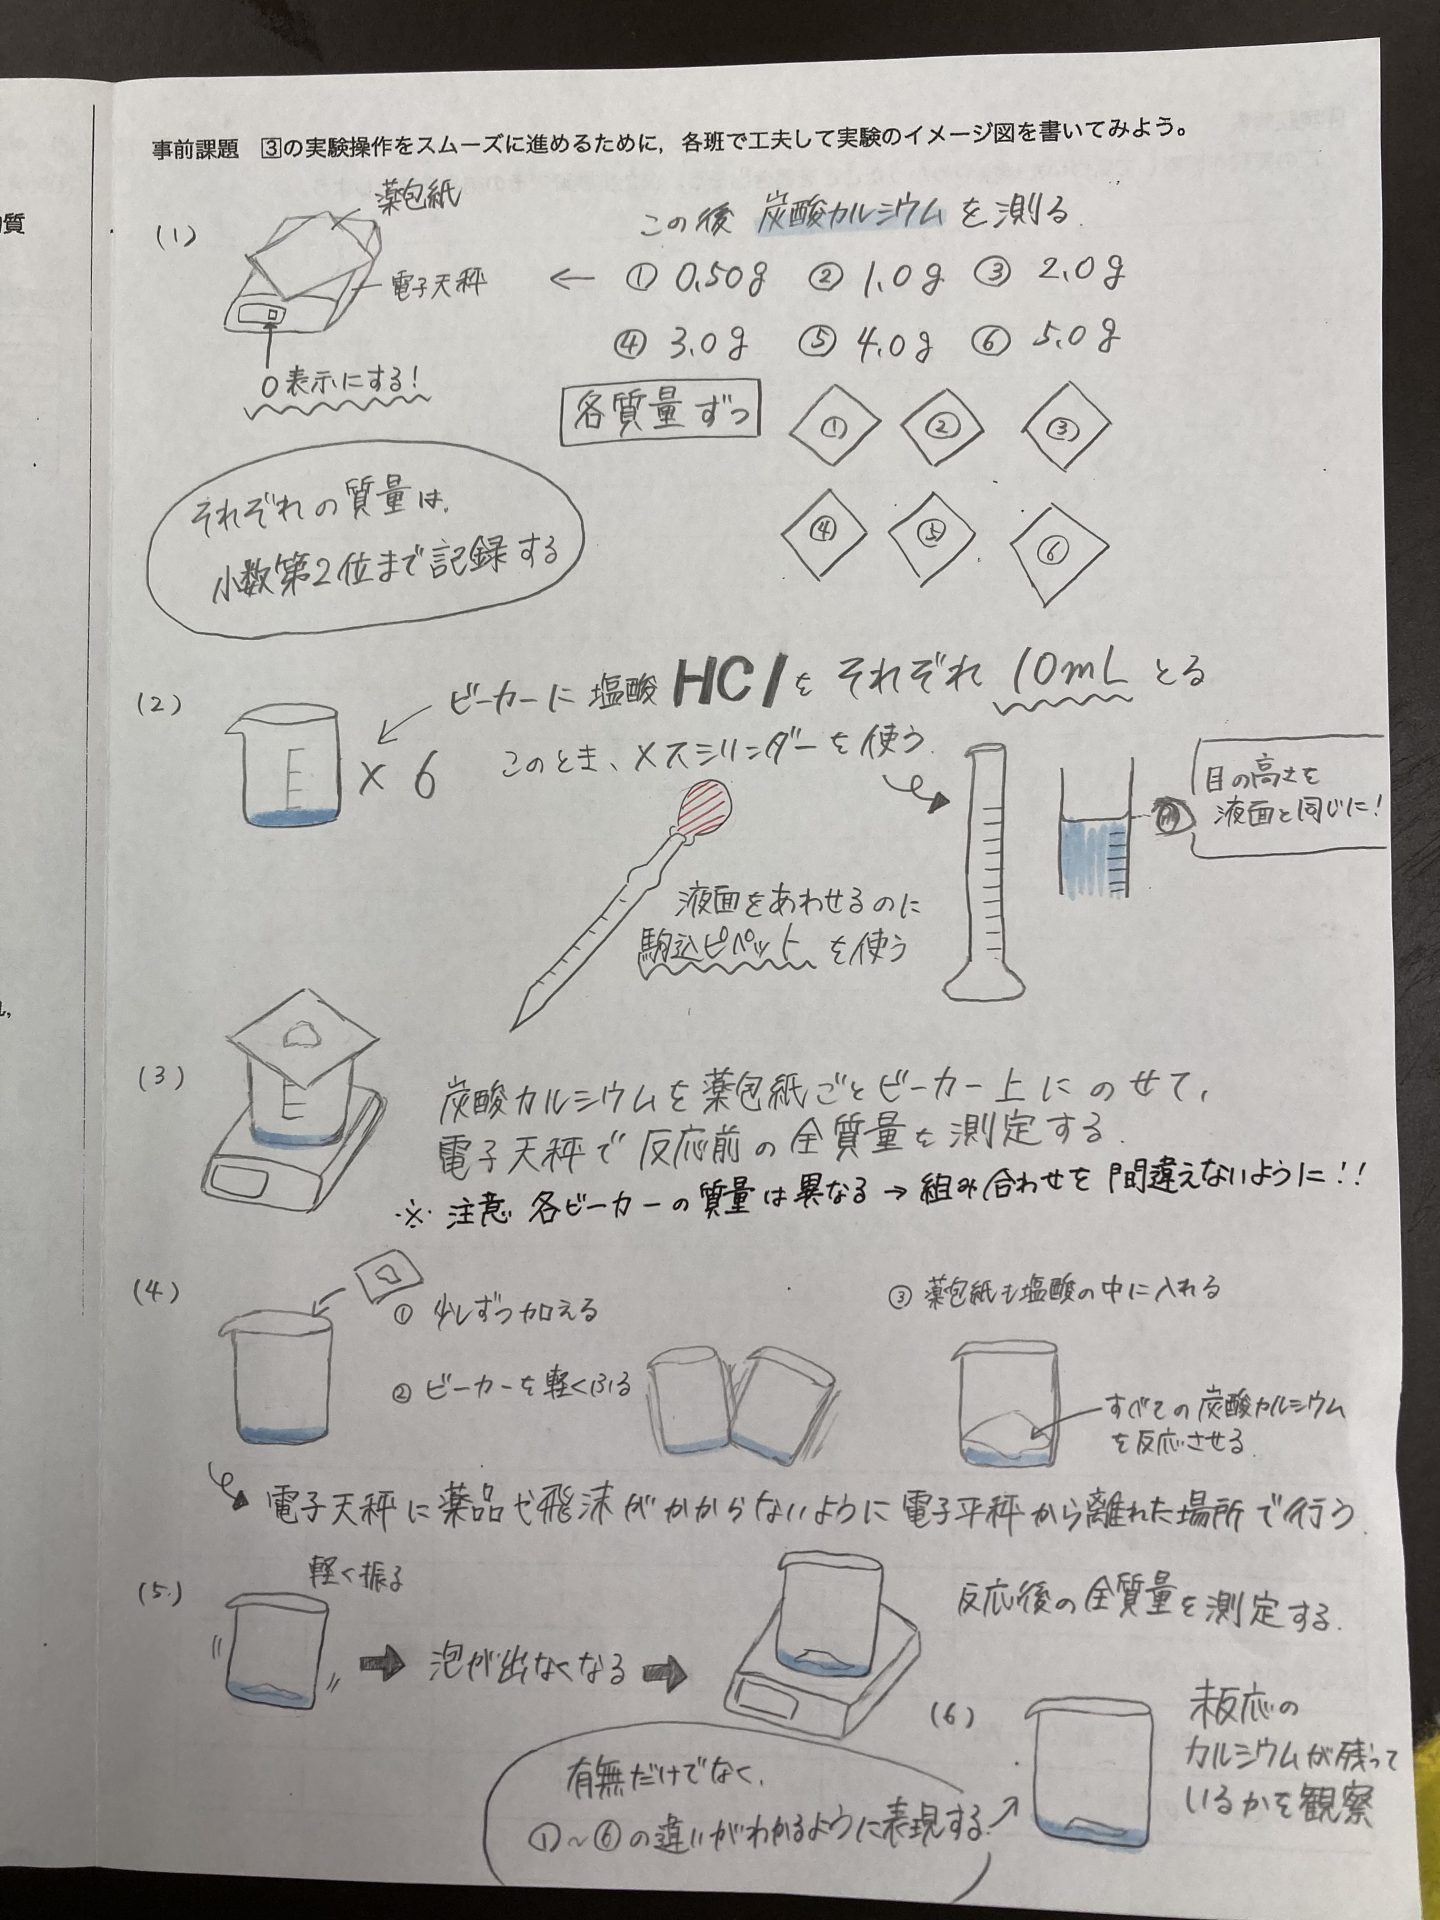 質
事前課題 3の実験操作をスムーズに進めるために,各班で工夫して実験のイメージ図を書いてみよう。
(1)
薬包紙
電子天秤
0表示にする!
この後 炭酸カルシウム を測る.
← ① 0.50g ② 1.0g ③ 2.0g
④ 3.0g ⑤ 4.0g ⑥ 5.0g
各質量ずつ
① ② ③
④ ⑤ ⑥
それぞれの質量は,
小数第2位まで記録する
(2)
× 6
ビーカーに 塩酸 HClを それぞれ 10mL とる
このとき、メスシリンダーを使う.
目の高さを
液面と同じに!
液面をあわせるのに
駒込ピペット を使う
(3)
炭酸カルシウムを薬包紙ごとビーカー上にのせて,
電子天秤で反応前の全質量を測定する.
※ 注意 各ビーカーの質量は異なる→組み合わせを間違えないように!!
(4)
① 少しずつ加える
② ビーカーを軽くふる
③ 薬包紙も塩酸の中に入れる
すべての炭酸カルシウム
を反応させる.
電子天秤に薬品や飛沫がかからないように電子平秤から離れた場所で行う.
(5.)
軽く振る
➡ 泡が出なくなる ➡
反応後の全質量を測定する.
(6)
未反応の
カルシウムが残って
いるかを観察
有無だけでなく,
①~⑥の違いがわかるように表現する.